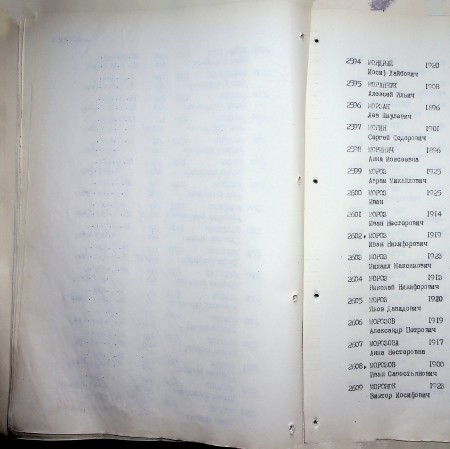 2594 МОРДКИЙ 1920
Иосиф Лайбович
2595 1908
Алексей Ильич
2596 МОРГАН 1896
Лев
2597 МОРИН 1901
Сергей Федорович
2598 1896
Анна Моисеевна
2599 МОРОЗ 1925
Абрам Михайлович
2600 МОРОЗ 1925
Иван
2601 МОРОЗ 1914
Иван Нестерович
2602 МОРОЗ 1919
Иван Никифорович
2603 МОРОЗ 1923
Михаил
2604 МОРОЗ 1918
Николай Никифорович
2605 МОРОЗ 1920
Яков Давидович
2606 МОРОЗОВ 1919
Александр Петрович
2607 МОРОЗОВА 1917
Анна Нестеровна
2608 МОРОЗОВ 1900
Иван Савостьянович
2609 1923
Виктор Иосифович